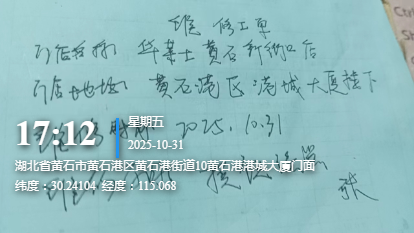 维修工单
门店名称 华莱士黄石新街口店
门店地址 黄石港区港城大厦楼下
2025.10.31
17:12
星期五
2025-10-31
湖北省黄石市黄石港区黄石港街道10黄石港港城大厦门面
纬度：30.24104 经度：115.068